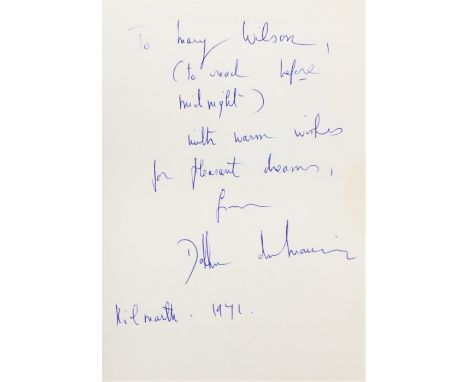 To Mary Wilson,
(to read before
midnight)
with warm wishes
for pleasant dreams,
from
Daphne du Maurier
Kilmarth. 1971.